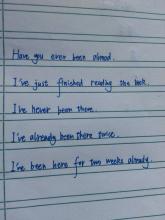 Have you ever been abroad.
I've just finished reading the book.
I've never been there.
I've already been there twice.
I've been here for two weeks already.